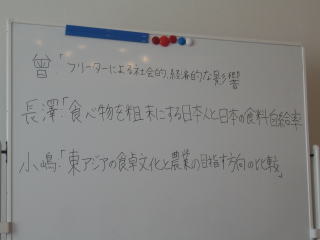 曾:「フリーターによる社会的、経済的な影響
長澤:「食べ物を粗末にする日本人と日本の食料自給率
小嶋:「東アジアの食卓文化と農業の目指す方向の比較」